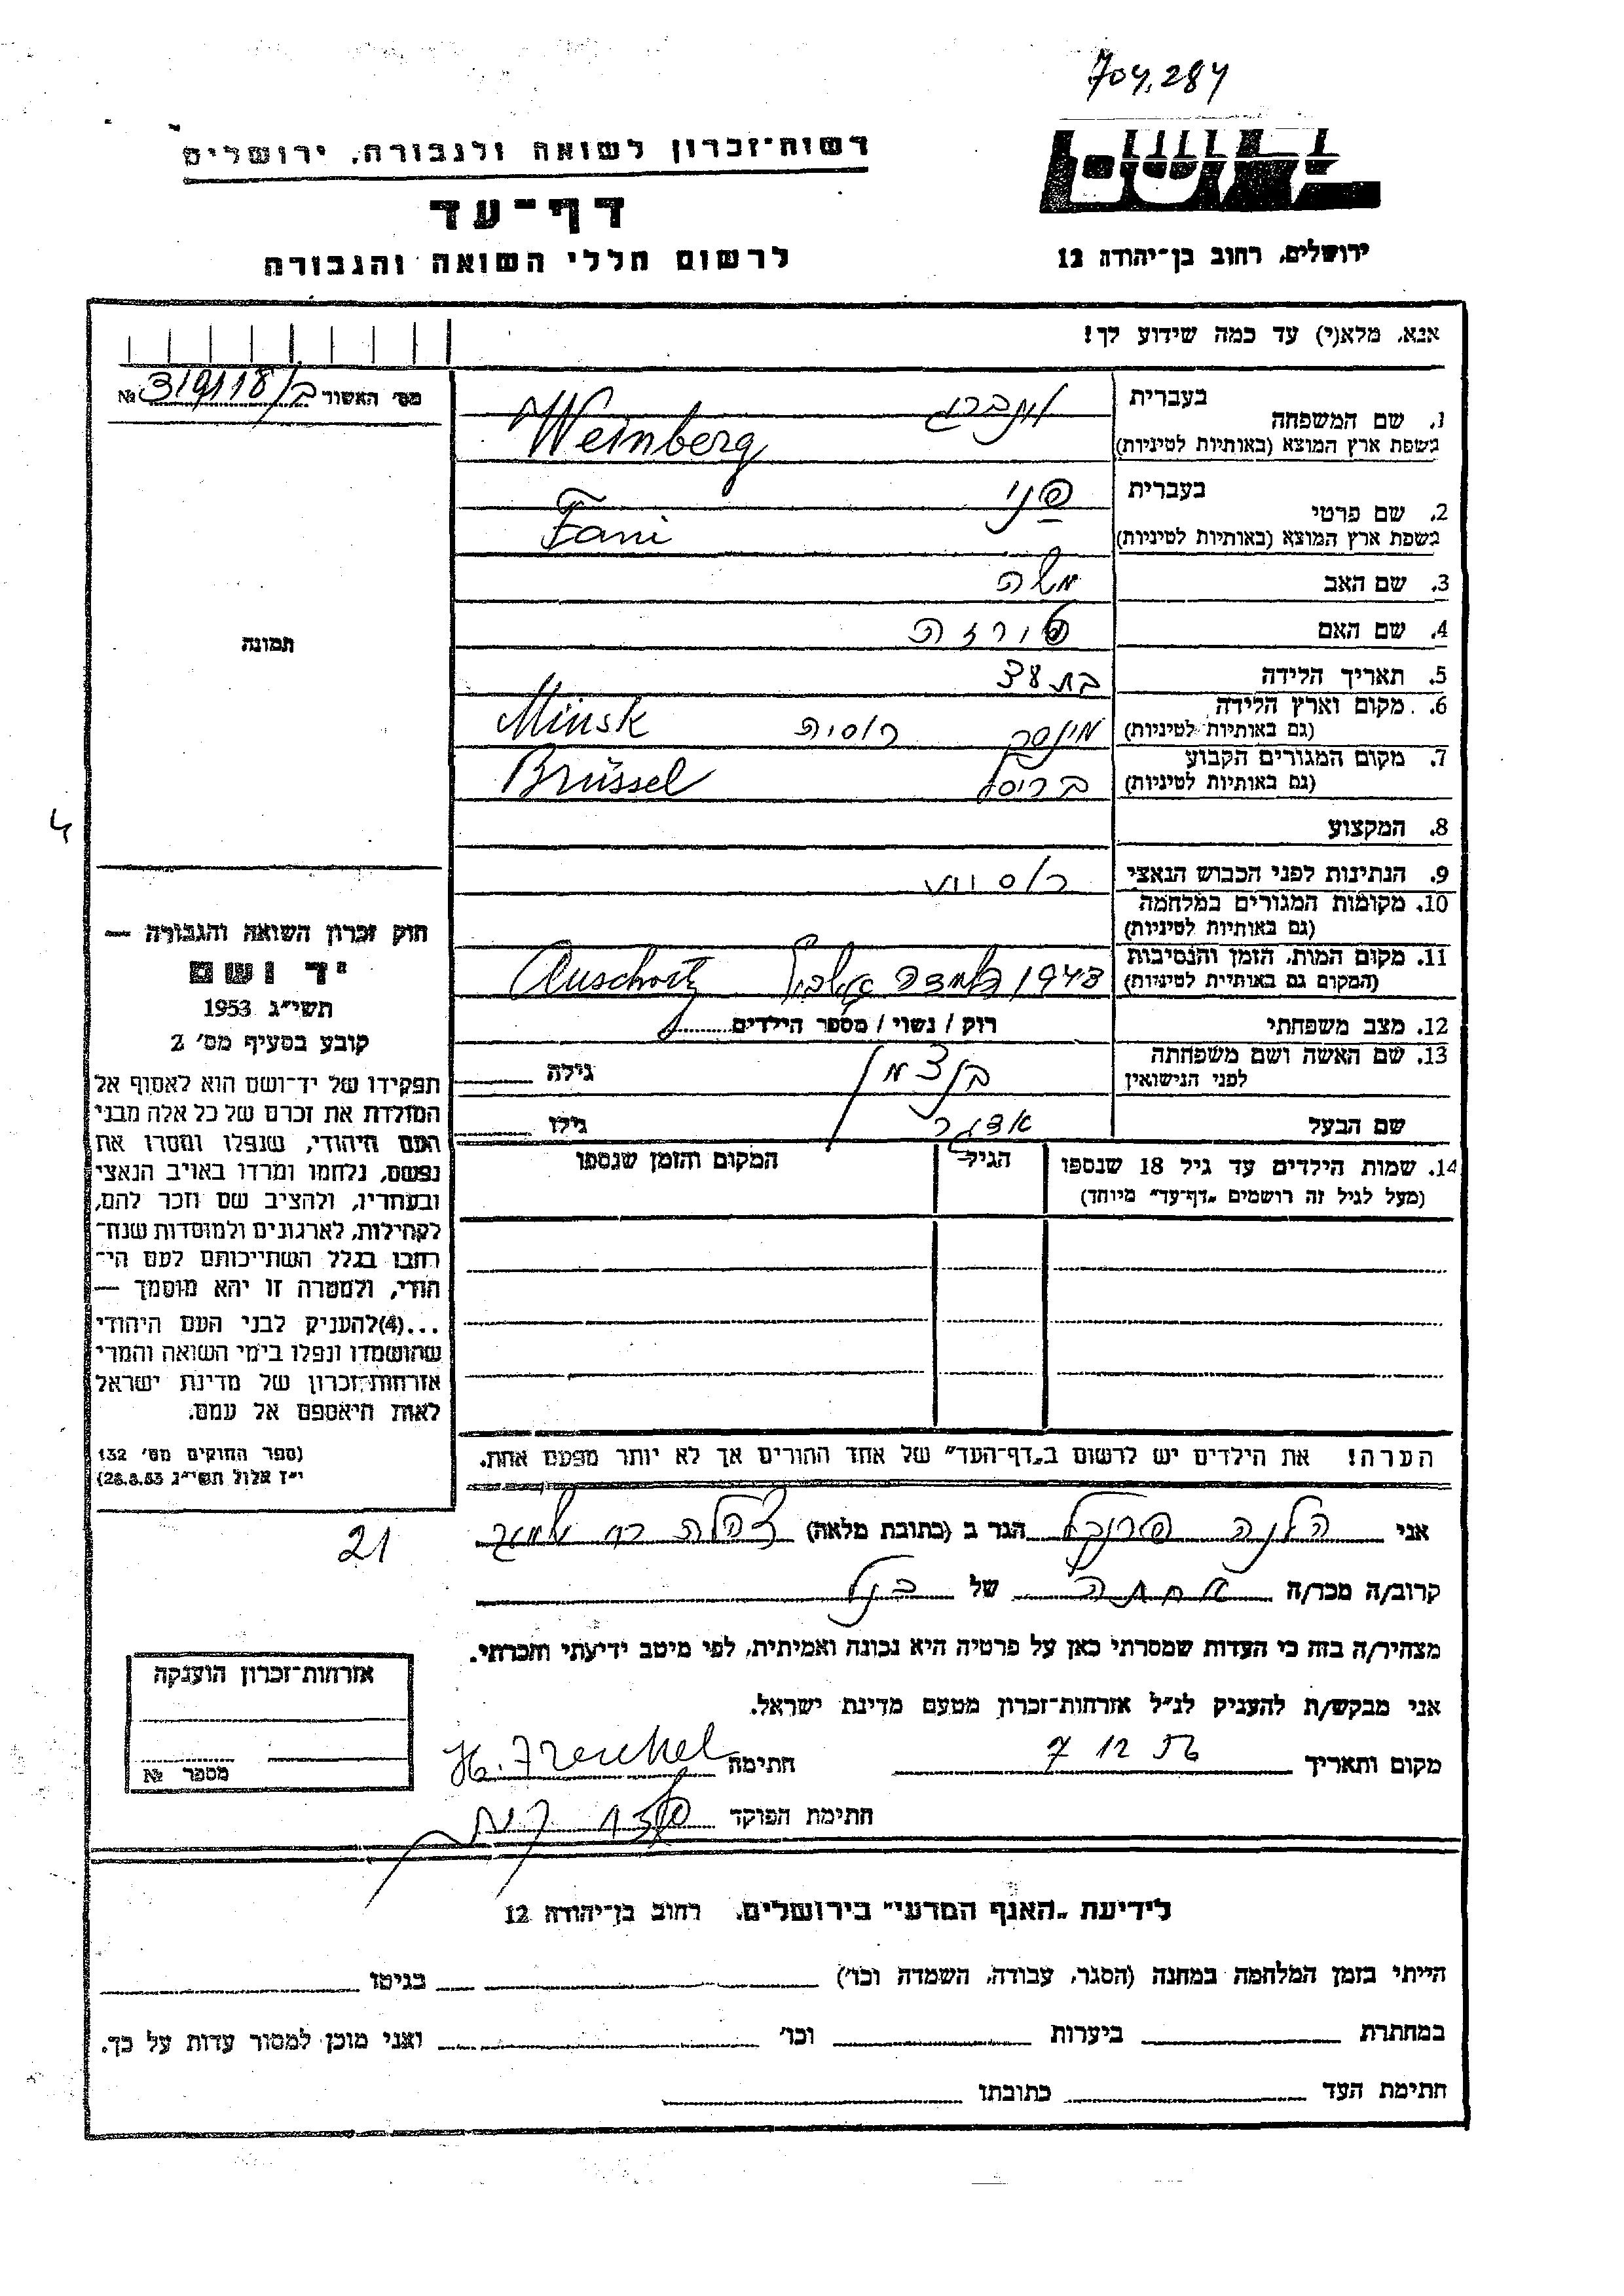 704,284
יד ושם
רשות־זכרון לשואה ולגבורה, ירושלים
דף־עד
לרשום חללי השואה והגבורה
ירושלים, רחוב בן־יהודה 12
אנא, מלא(י) עד כמה שידוע לך!
מס׳ האשור ב/319118 №
1. שם המשפחה
בעברית וינברג
בשפת ארץ המוצא (באותיות לטיניות) Weinberg
2. שם פרטי
בעברית פני
בשפת ארץ המוצא (באותיות לטיניות) Fani
3. שם האב משה
4. שם האם
5. תאריך הלידה בת
6. מקום וארץ הלידה
(גם באותיות לטיניות) מינסק רוסיה Minsk
7. מקום המגורים הקבוע
(גם באותיות לטיניות) בריסל Brüssel
8. המקצוע
9. הנתינות לפני הכבוש הנאצי
10. מקומות המגורים במלחמה
(גם באותיות לטיניות)
11. מקום המות, הזמן והנסיבות
(המקום גם באותיות לטיניות) 1943
12. מצב משפחתי רוק / נשוי / מספר הילדים
13. שם האשה ושם משפחתה
לפני הנישואין גילה
שם הבעל גילו
14. שמות הילדים עד גיל 18 שנספו
(מעל לגיל זה רושמים „דף־עד״ מיוחד)
הגיל
המקום והזמן שנספו
תמונה
4
חוק זכרון השואה והגבורה —
יד ושם
תשי״ג 1953
קובע בסעיף מס׳ 2
תפקידו של יד־ושם הוא לאסוף אל
המולדת את זכרם של כל אלה מבני
העם היהודי, שנפלו ומסרו את
נפשם, נלחמו ומרדו באויב הנאצי
ובעוזריו, ולהציב שם וזכר להם,
לקהילות, לארגונים ולמוסדות שנח־
רבו בגלל השתייכותם לעם הי־
הודי, ולמטרה זו יהא מוסמך —
...(4)להעניק לבני העם היהודי
שהושמדו ונפלו בימי השואה והמרי
אזרחות־זכרון של מדינת ישראל
לאות היאספם אל עמם.
(ספר החוקים מס׳ 132
י״ז אלול תשי״ג 28.8.53)
הערה! את הילדים יש לרשום ב„דף־העד״ של אחד ההורים אך לא יותר מפעם אחת.
21
אני הלנה פרנקל הגר ב (כתובת מלאה)
קרוב/ה מכר/ה של
מצהיר/ה בזה כי העדות שמסרתי כאן על פרטיה היא נכונה ואמיתית, לפי מיטב ידיעתי והכרתי.
אני מבקש/ת להעניק לנ״ל אזרחות־זכרון מטעם מדינת ישראל.
מקום ותאריך 7 12 56 חתימה H. Frenkel
חתימת הפוקד
אזרחות־זכרון הוענקה
מספר №
לידיעת „האגף המדעי״ בירושלים, רחוב בן־יהודה 12
הייתי בזמן המלחמה במחנה (הסגר, עבודה, השמדה וכו׳) בגיטו
במחתרת ביערות וכו׳ ואני מוכן למסור עדות על כך.
חתימת העד כתובתו